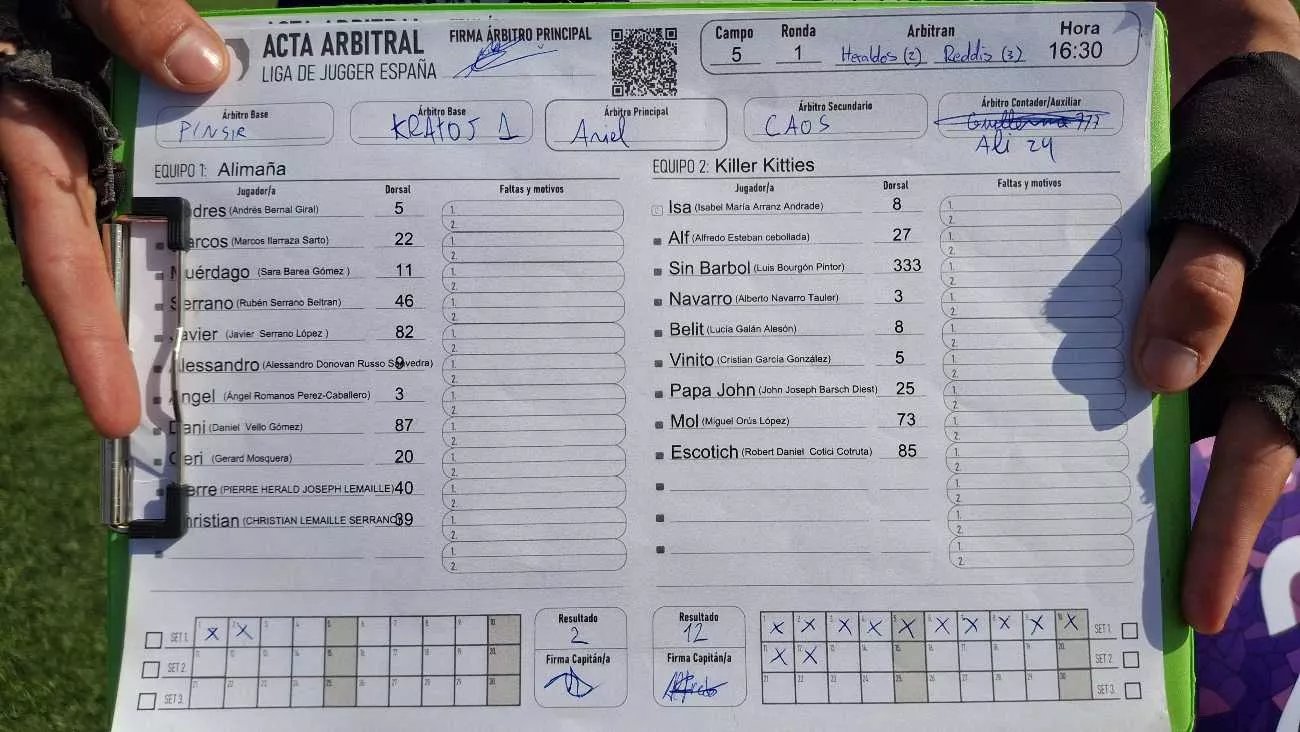 ACTA ARBITRAL
LIGA DE JUGGER ESPAÑA
FIRMA ÁRBITRO PRINCIPAL
Campo Ronda Arbitran Hora
5 1 Heraldos (2) Reddis (3) 16:30
Árbitro Base Árbitro Base Árbitro Principal Árbitro Secundario Árbitro Contador/Auxiliar
PINSIR KRATOS 1 Ariel CAOS Guillermo 777
Ali 24
EQUIPO 1: Alimaña
Jugador/a Dorsal Faltas y motivos
ndres (Andrés Bernal Giral) 5 1. 2.
arcos (Marcos Ilarraza Sarto) 22 1. 2.
Muérdago (Sara Barea Gómez ) 11 1. 2.
Serrano (Rubén Serrano Beltran) 46 1. 2.
Javier (Javier Serrano López ) 82 1. 2.
Alessandro (Alessandro Donovan Russo Saavedra) 9 1. 2.
Angel (Ángel Romanos Perez-Caballero) 3 1. 2.
Dani (Daniel Vello Gómez) 87 1. 2.
Geri (Gerard Mosquera) 20 1. 2.
ierre (PIERRE HERALD JOSEPH LEMAILLE) 40 1. 2.
hristian (CHRISTIAN LEMAILLE SERRANO) 39 1. 2.
1. 2.
EQUIPO 2: Killer Kitties
Jugador/a Dorsal Faltas y motivos
Isa (Isabel María Arranz Andrade) 8 1. 2.
Alf (Alfredo Esteban cebollada) 27 1. 2.
Sin Barbol (Luis Bourgón Pintor) 333 1. 2.
Navarro (Alberto Navarro Tauler) 3 1. 2.
Belit (Lucía Galán Alesón) 8 1. 2.
Vinito (Cristian García González) 5 1. 2.
Papa John (John Joseph Barsch Diest) 25 1. 2.
Mol (Miguel Orús López) 73 1. 2.
Escotich (Robert Daniel Cotici Cotruta) 85 1. 2.
1. 2.
1. 2.
1. 2.
SET 1. 1 2 3 4 5 6 7 8 9 10
SET 2. 11 12 13 14 15 16 17 18 19 20
SET 3. 21 22 23 24 25 26 27 28 29 30
Resultado
2
Firma Capitán/a
Resultado
12
Firma Capitán/a
Alfredo
1 2 3 4 5 6 7 8 9 10 SET 1.
11 12 13 14 15 16 17 18 19 20 SET 2.
21 22 23 24 25 26 27 28 29 30 SET 3.